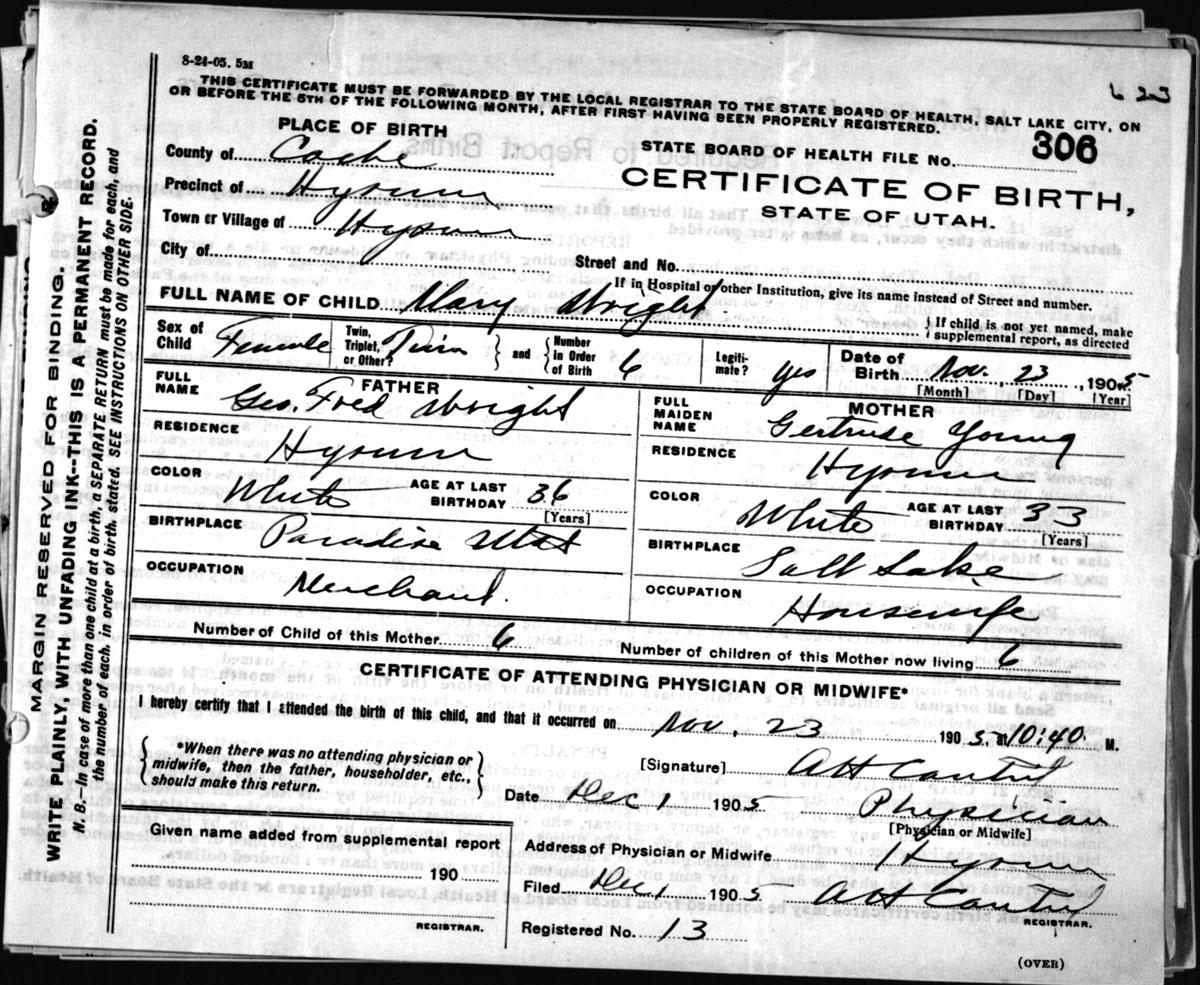 8-24-05. 5M
6 23
THIS CERTIFICATE MUST BE FORWARDED BY THE LOCAL REGISTRAR TO THE STATE BOARD OF HEALTH, SALT LAKE CITY, ON
OR BEFORE THE 5TH OF THE FOLLOWING MONTH, AFTER FIRST HAVING BEEN PROPERLY REGISTERED.
PLACE OF BIRTH
STATE BOARD OF HEALTH FILE NO. 306
County of Cache
CERTIFICATE OF BIRTH,
Precinct of Hyrum
STATE OF UTAH.
Town or Village of Hyrum
City of
Street and No.
If in Hospital or other Institution, give its name instead of Street and number.
FULL NAME OF CHILD Mary Wright
If child is not yet named, make
supplemental report, as directed
Sex of Child Female Twin, Triplet, or Other? Twin and Number in Order of Birth 6 Legiti-mate? yes Date of Birth Nov. 23, 1905
[Month] [Day] [Year]
FATHER
FULL NAME Geo. Fred Wright
RESIDENCE Hyrum
COLOR White AGE AT LAST BIRTHDAY 36
[Years]
BIRTHPLACE Paradise Utah
OCCUPATION Merchant.
MOTHER
FULL MAIDEN NAME Gertrude Young
RESIDENCE Hyrum
COLOR White AGE AT LAST BIRTHDAY 33
[Years]
BIRTHPLACE Salt Lake
OCCUPATION Housewife
Number of Child of this Mother 6 Number of children of this Mother now living 6
CERTIFICATE OF ATTENDING PHYSICIAN OR MIDWIFE*
I hereby certify that I attended the birth of this child, and that it occurred on Nov. 23 1905, at 10:40 M.
*When there was no attending physician or
midwife, then the father, householder, etc.,
should make this return.
[Signature] A H Cantril
Date Dec 1 1905 Physician
[Physician or Midwife]
Given name added from a supplemental report
190
REGISTRAR.
Address of Physician or Midwife Hyrum
Filed Dec 1 1905 A H Cantril
REGISTRAR.
Registered No. 13
(OVER)
MARGIN RESERVED FOR BINDING.
WRITE PLAINLY, WITH UNFADING INK--THIS IS A PERMANENT RECORD.
N.B.--In case of more than one child at a birth, a SEPARATE RETURN must be made for each, and
the number of each, in order of birth, stated. SEE INSTRUCTIONS ON OTHER SIDE.